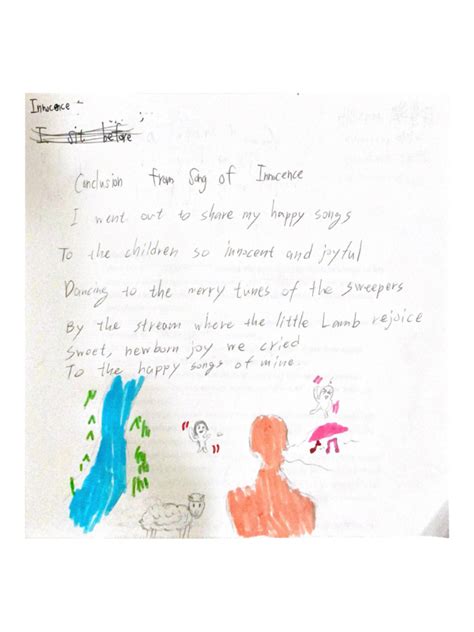 Innocence -
I sit before
Conclusion from Song of Innocence
I went out to share my happy songs
To the children so innocent and joyful
Dancing to the merry tunes of the sweepers
By the stream where the little Lamb rejoice
Sweet, newborn joy we cried
To the happy songs of mine.